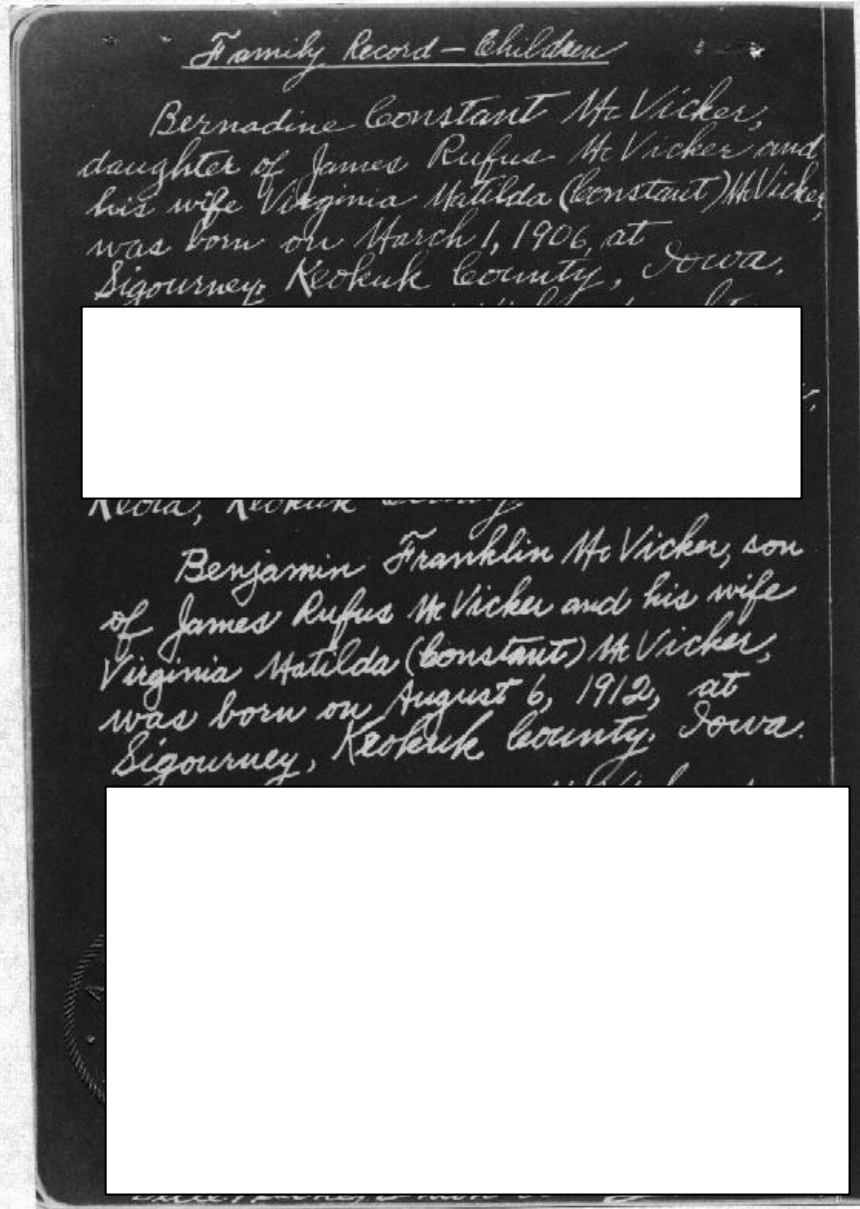 Family Record – Children
Bernadine Constant McVicker,
daughter of James Rufus McVicker and
his wife Virginia Matilda (Constant) McVicker,
was born on March 1, 1906, at
Sigourney, Keokuk County, Iowa.
Keota, Keokuk County
Benjamin Franklin McVicker, son
of James Rufus McVicker and his wife
Virginia Matilda (Constant) McVicker,
was born on August 6, 1912, at
Sigourney, Keokuk County, Iowa.